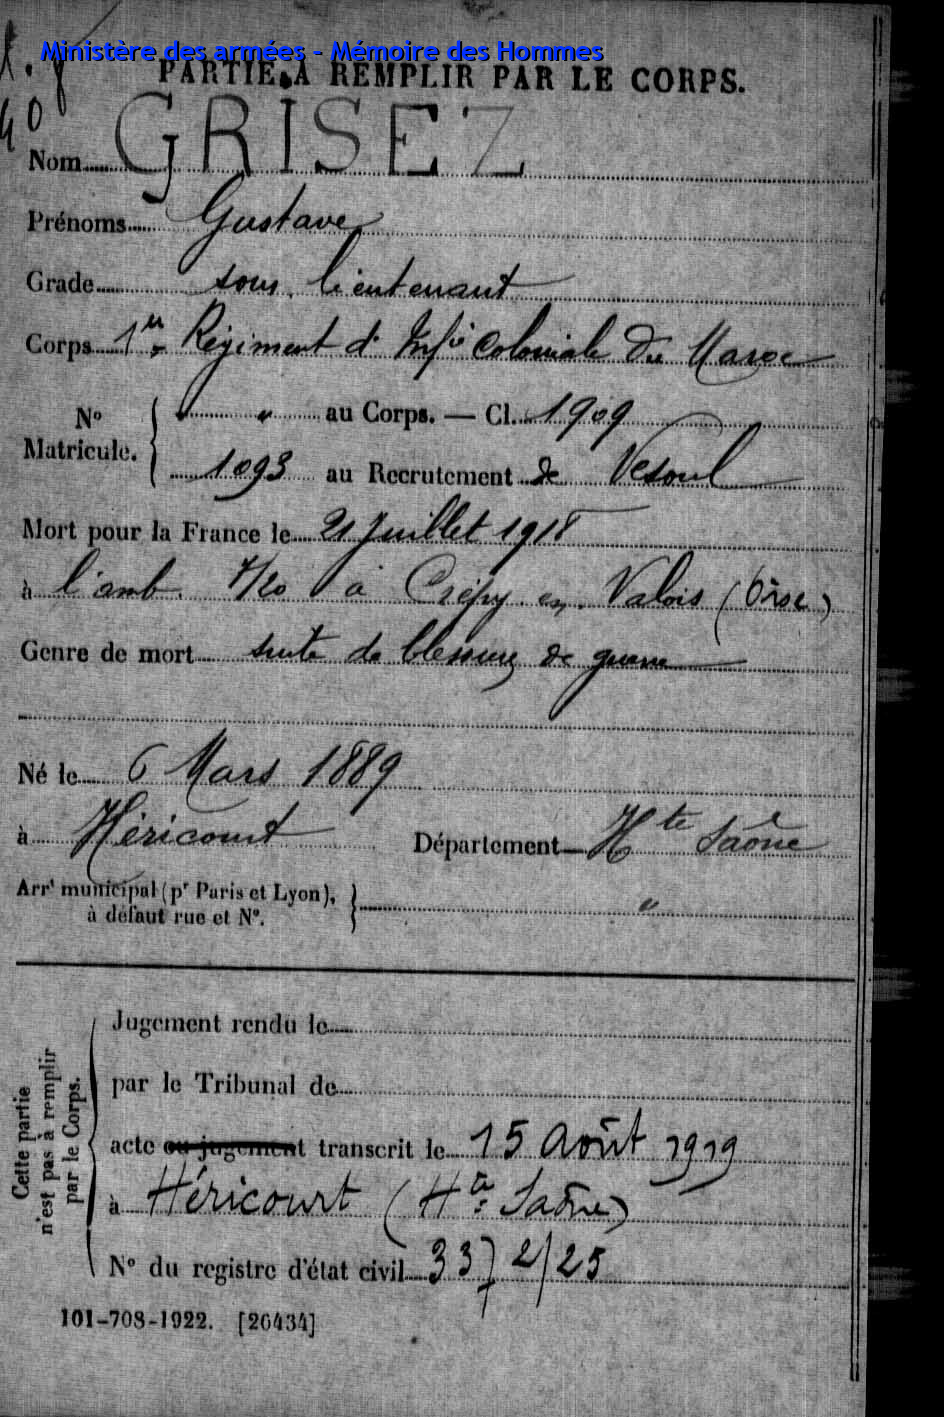 Ministère des armées - Mémoire des Hommes
PARTIE À REMPLIR PAR LE CORPS.
40
Nom GRISEZ
Prénoms Gustave
Grade sous lieutenant
Corps 1er Régiment d'Infie Coloniale du Maroc
N° Matricule. { " au Corps. — Cl. 1909
1093 au Recrutement de Vesoul
Mort pour la France le 21 Juillet 1918
à l'amb. 7/20 à Crépy en Valois (Oise)
Genre de mort suite de blessures de guerre
Né le 6 Mars 1889
à Héricourt Département Hte Saône
Arrt municipal (pr Paris et Lyon), à défaut rue et N°. } "
Cette partie n'est pas à remplir par le Corps.
Jugement rendu le
par le Tribunal de
acte ou jugement transcrit le 15 Août 1919
à Héricourt (Hte Saône)
N° du registre d'état civil 337 2/25
101-708-1922. [26434]